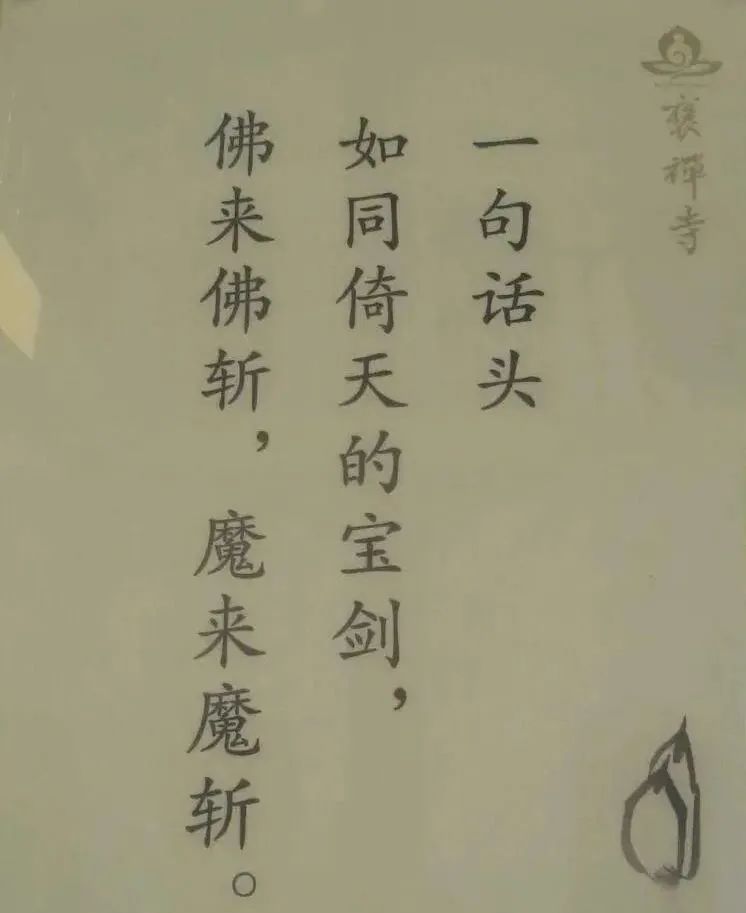 褒禅寺
一句话头
如同倚天的宝剑，
佛来佛斩，魔来魔斩。